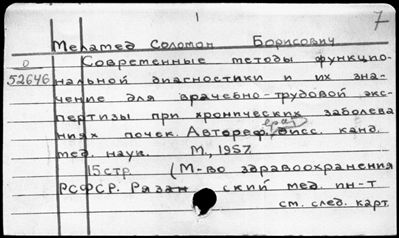 7
Меламед Соломон Борисович
D Современные методы функцио-
52646 нальной диагностики и их зна-
чение для врачебно-трудовой экс-
пертизы при хронических заболева
ниях почек. Автореф. дисс. канд.
мед. наук. М., 1957.
15 стр. (М-во здравоохранения
РСФСР. Рязан ский мед. ин-т
см. след. карт.